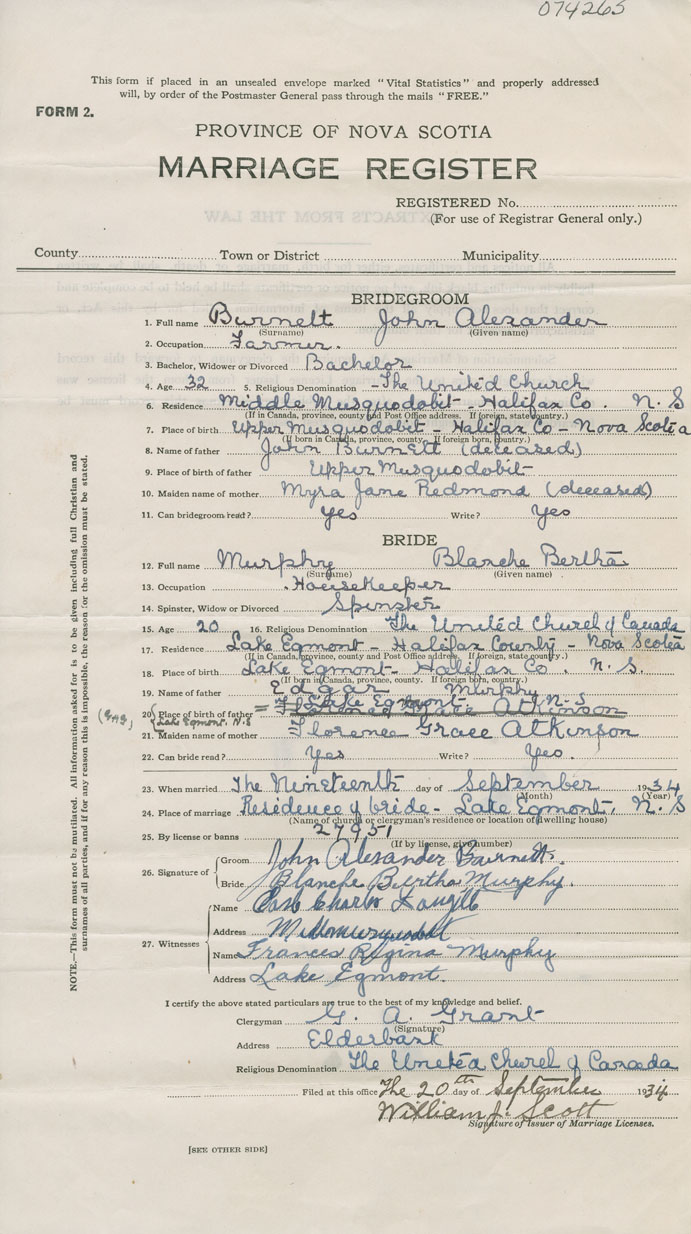 074265
This form if placed in an unsealed envelope marked "Vital Statistics" and properly addressed
will, by order of the Postmaster General pass through the mails "FREE."
FORM 2.
PROVINCE OF NOVA SCOTIA
MARRIAGE REGISTER
REGISTERED No.
(For use of Registrar General only.)
County Town or District Municipality
BRIDEGROOM
1. Full name Burnett John Alexander
(Surname) (Given name)
2. Occupation Farmer.
3. Bachelor, Widower or Divorced Bachelor
4. Age 32 5. Religious Denomination - The United Church
6. Residence Middle Musquodobit - Halifax Co. N. S
(If in Canada, province, county and Post Office address. If foreign, state country.)
7. Place of birth Upper Musquodobit - Halifax Co - Nova Scotia
(If born in Canada, province, county. If foreign born, country.)
8. Name of father John Burnett (deceased)
9. Place of birth of father Upper Musquodobit
10. Maiden name of mother Myra Jane Redmond (deceased)
11. Can bridegroom read? Yes Write? Yes
BRIDE
12. Full name Murphy Blanche Bertha
(Surname) (Given name)
13. Occupation Housekeeper
14. Spinster, Widow or Divorced Spinster
15. Age 20 16. Religious Denomination The United Church of Canada
17. Residence Lake Egmont - Halifax County - Nova Scotia
(If in Canada, province, county and Post Office address. If foreign, state country.)
18. Place of birth Lake Egmont - Halifax Co. N. S.
(If born in Canada, province, county. If foreign born, country.)
19. Name of father Edgar Murphy
20. Place of birth of father = Lake Egmont N-S
Florence Grace Atkinson
(Lake Egmont. N.S
21. Maiden name of mother Florence Grace Atkinson
22. Can bride read? Yes Write? Yes.
23. When married The Nineteenth day of September 1934
(Month) (Year)
24. Place of marriage Residence of bride - Lake Egmont, N. S
(Name of church or clergyman's residence or location of dwelling house)
25. By license or banns 27951
(If by license, give number)
26. Signature of
Groom John Alexander Burnett.
Bride Blanche Bertha Murphy.
27. Witnesses
Name Charles
Address
Name Frances Regina Murphy
Address Lake Egmont.
I certify the above stated particulars are true to the best of my knowledge and belief.
Clergyman G. A. Grant
(Signature)
Address Elderbank
Religious Denomination The United Church of Canada
Filed at this office The 20th day of September 1934
William J. Scott
Signature of Issuer of Marriage Licenses.
[SEE OTHER SIDE]
NOTE.—This form must not be mutilated. All information asked for is to be given including full Christian and
surnames of all parties, and if for any reason this is impossible, the reason for the omission must be stated.